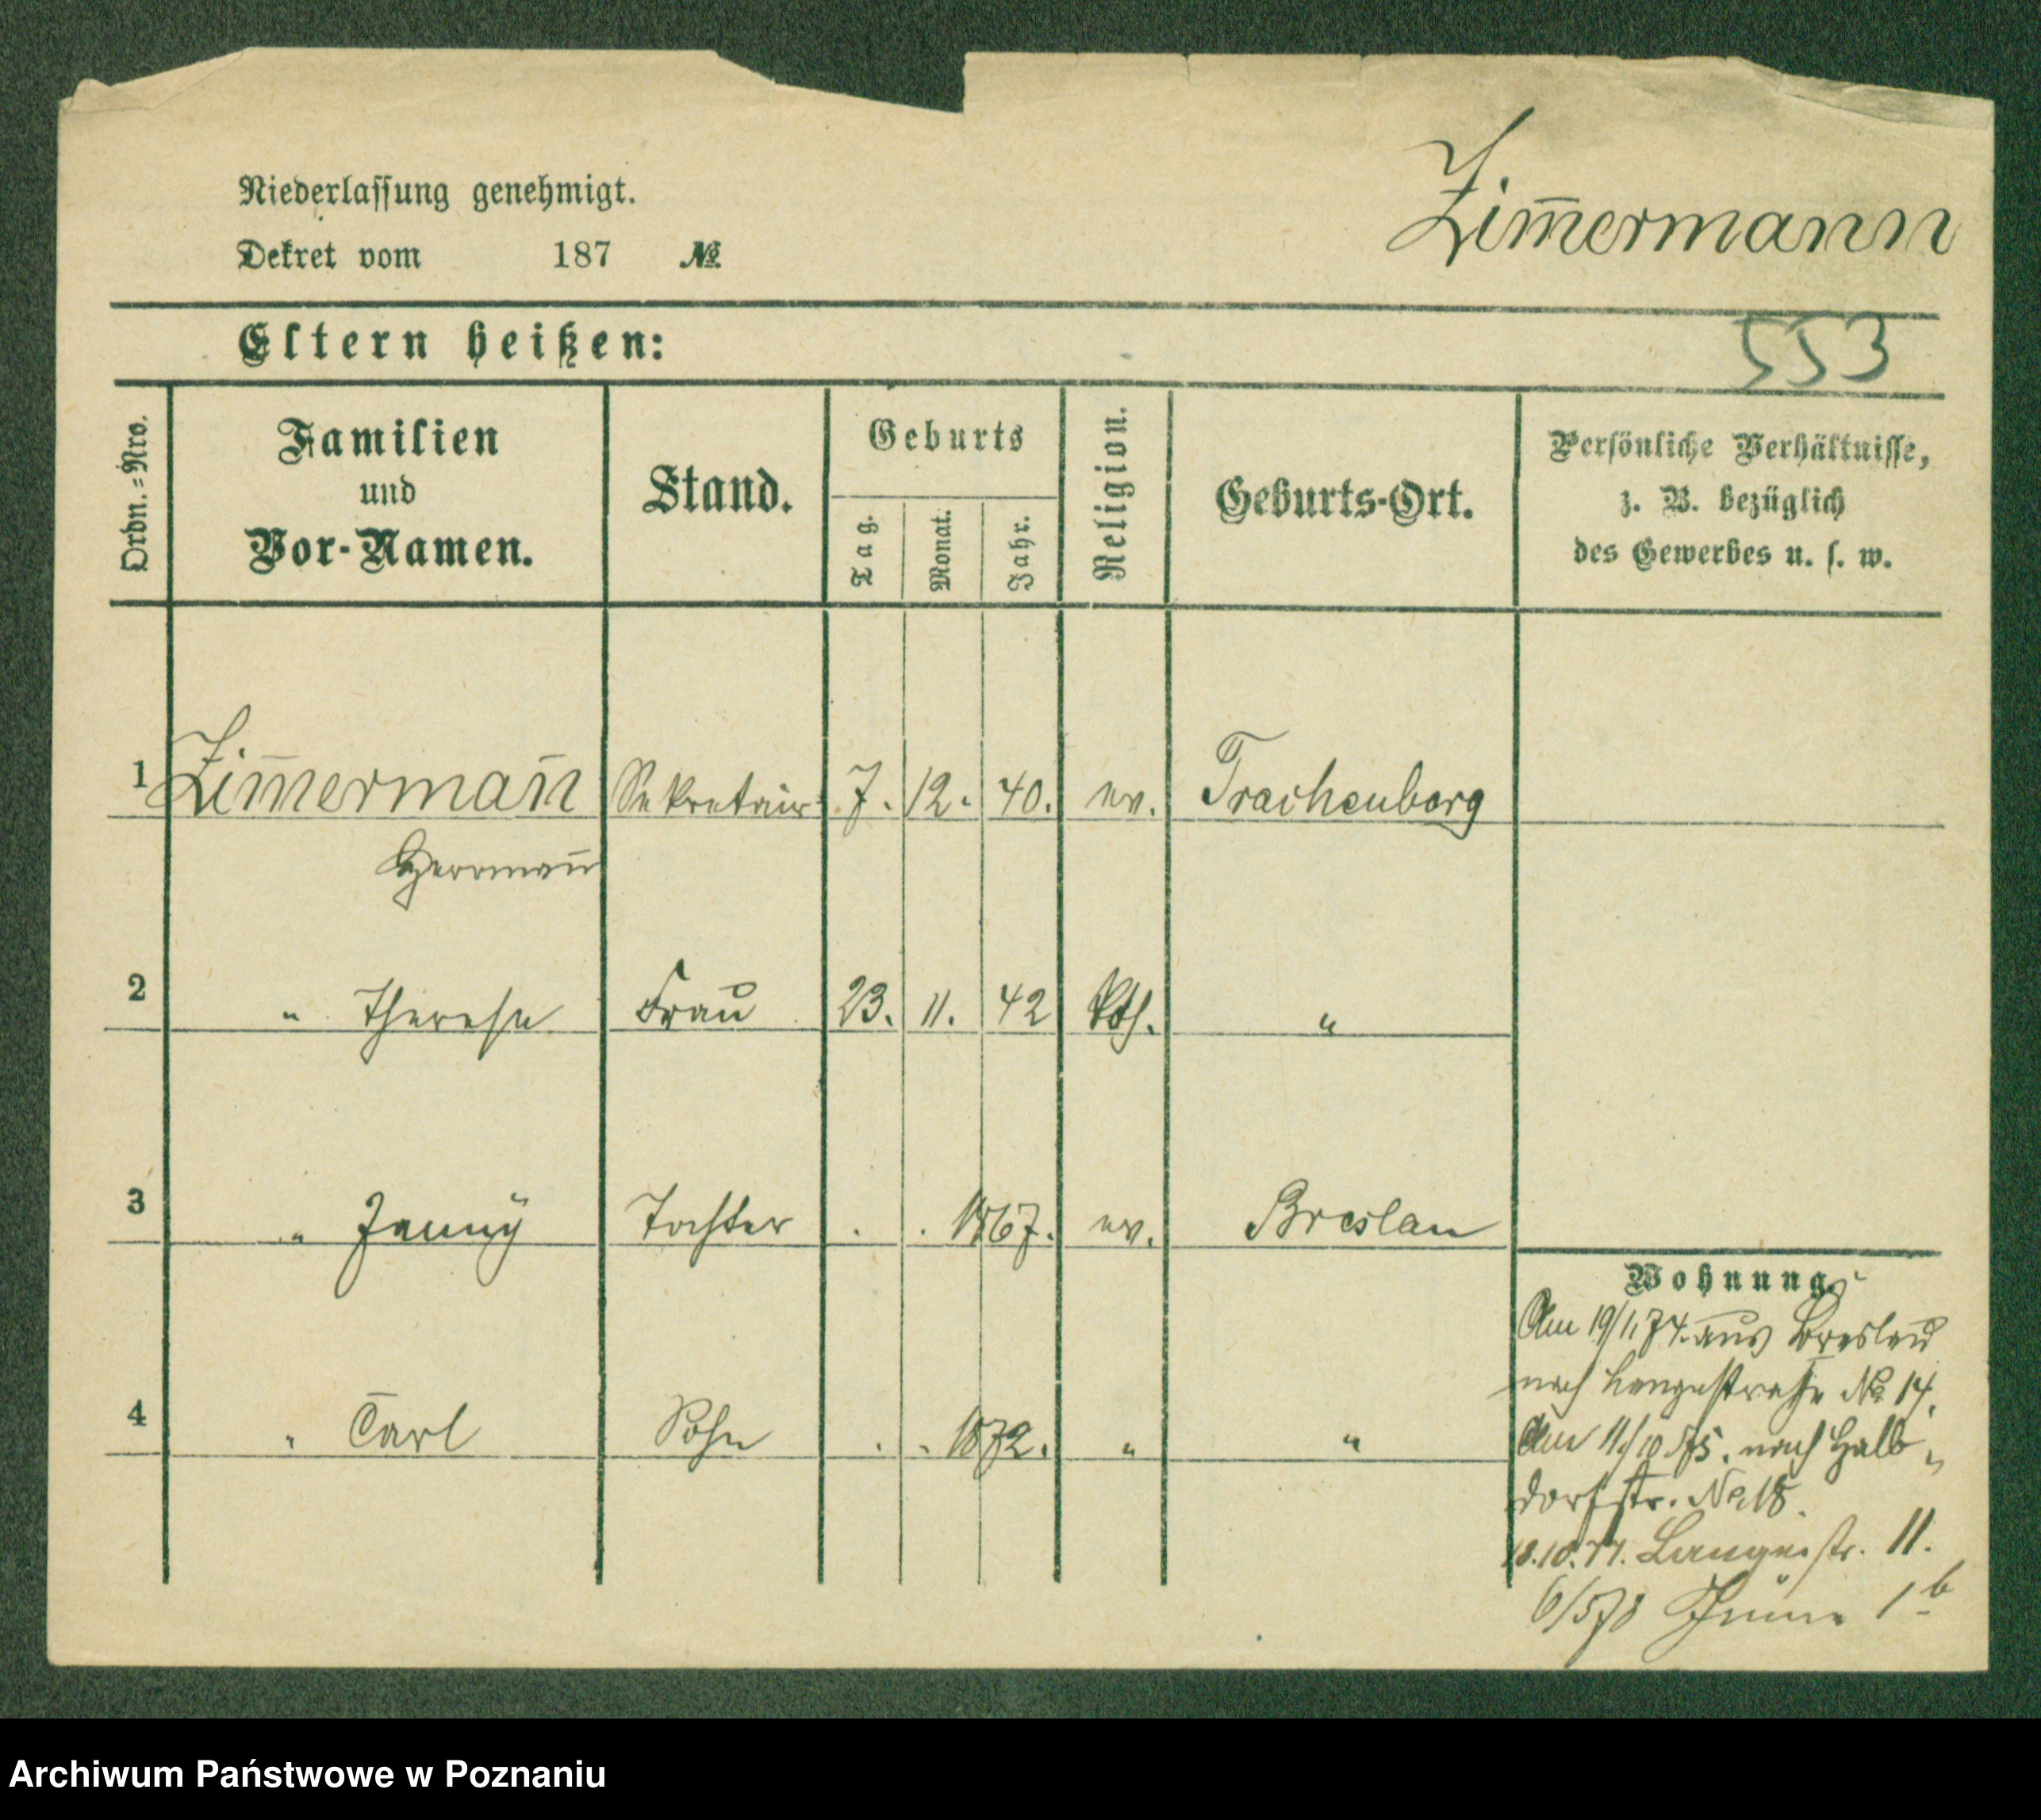 Niederlassung genehmigt.
Zim̅ermann
Dekret vom 187 №
Eltern heißen:
553
Ordn.=Nro.
Familien
und
Vor-Namen.
Stand.
Geburts
Tag.
Monat.
Jahr.
Religion.
Geburts-Ort.
Persönliche Verhältnisse,
z. B. bezüglich
des Gewerbes u. s. w.
1 Zim̅erman̅ Sekretair 7. 12. 40. ev. Trachenberg
Herrman̅
2 " Therese Frau 23. 11. 42 kath. "
3 " Jenny Tochter . . 1867. ev. Breslau
Wohnung.
Am 19/1.74. aus Breslau
nach Langestraße No 14.
4 " Carl Sohn . . 1872. " "
Am 11/10.75. nach Halb-
dorfstr. No 18.
18.10.77. Langestr. 11.
6/5 78 1b
Archiwum Państwowe w Poznaniu